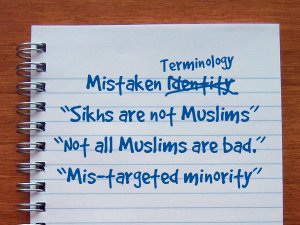 Terminology
Mistaken Identity
"Sikhs are not Muslims"
"Not all Muslims are bad."
"Mis-targeted minority"